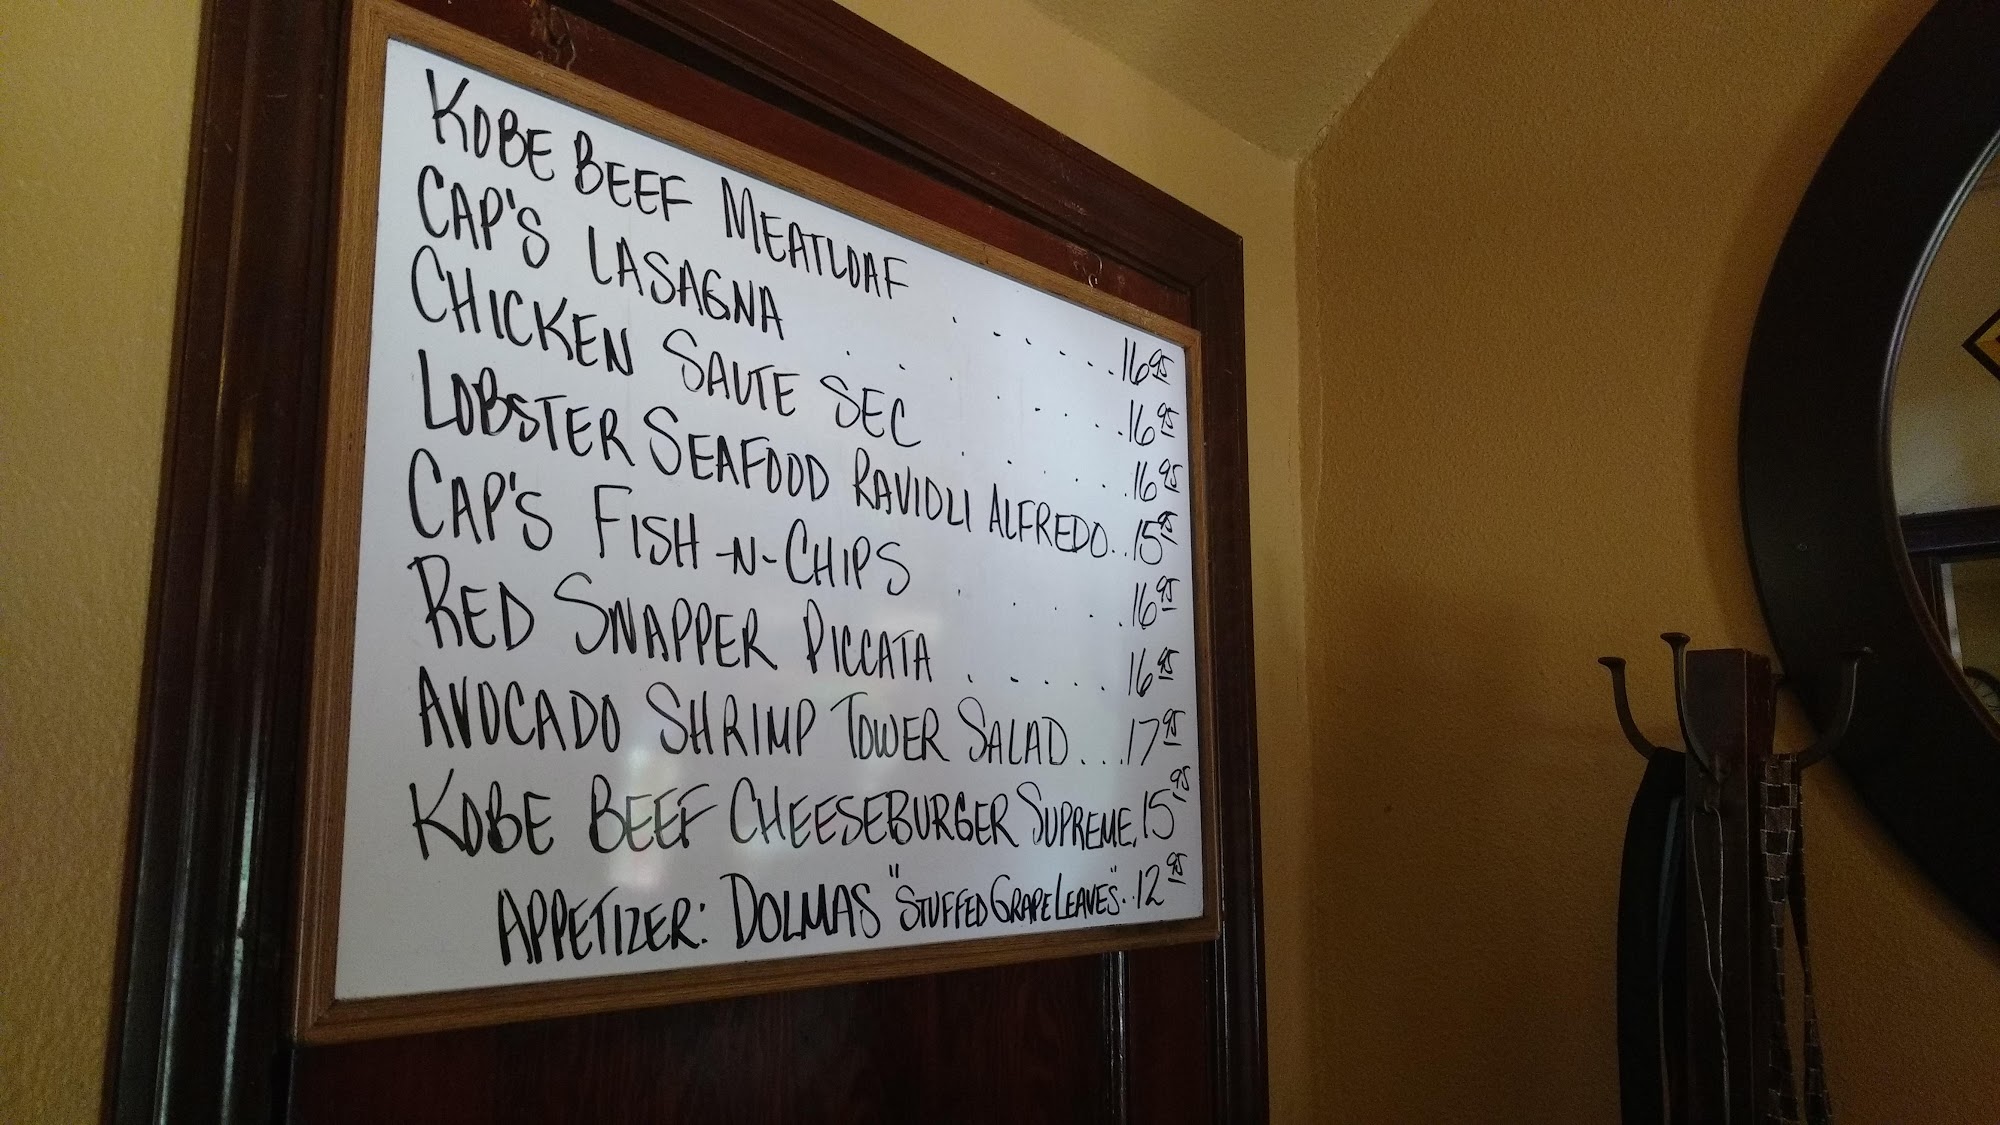 KOBE BEEF MEATLOAF . . . . . . 16 95
CAP'S LASAGNA . . . . . . . . 16 95
CHICKEN SAUTE SEC . . . . . . 16 95
LOBSTER SEAFOOD RAVIOLI ALFREDO . . 15 95
CAP'S FISH-N-CHIPS . . . . . 16 95
RED SNAPPER PICCATA . . . . . 16 95
AVOCADO SHRIMP TOWER SALAD . . . 17 95
KOBE BEEF CHEESEBURGER SUPREME . 15 95
APPETIZER: DOLMAS "STUFFED GRAPE LEAVES" . . 12 95